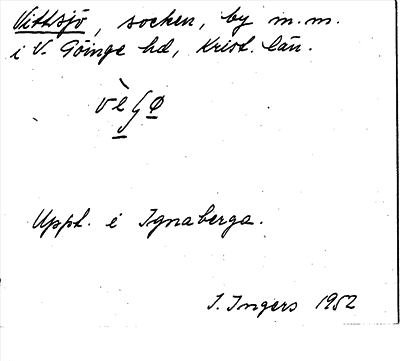 Vittsjö, socken, by m.m.
i V. Göinge hd, Krist. län.
Uppt. i Ignaberga.
I. Ingers 1952